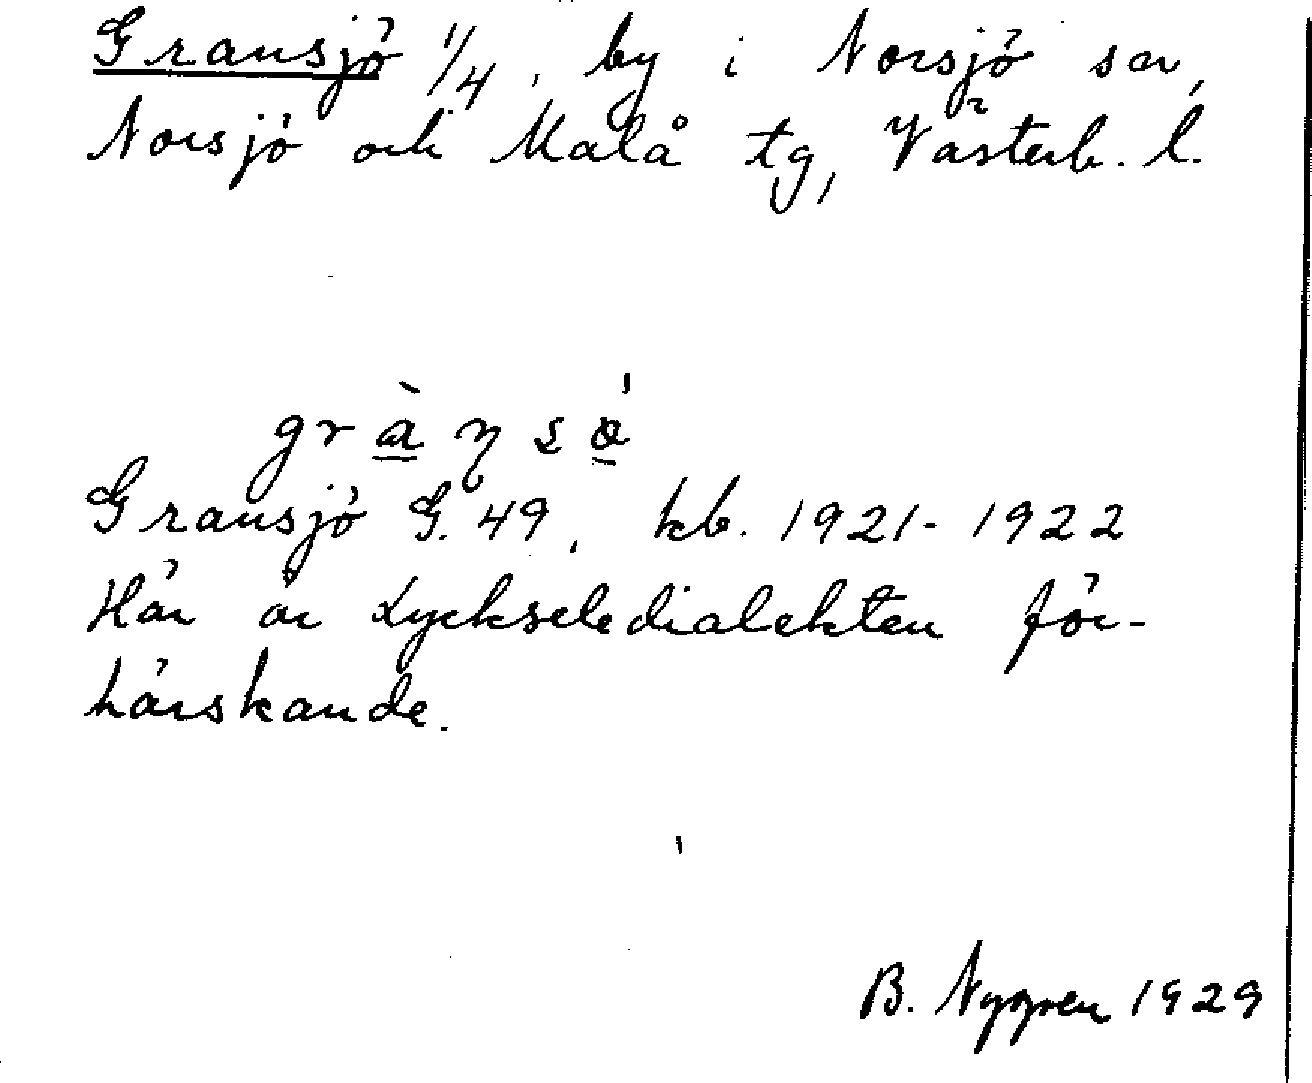 Gransjö 1/4, by i Norsjö sn,
Norsjö och Malå tg, Västerb. l.
Gransjö G. 49, kb. 1921-1922
Här är Lyckseledialekten för-
härskande.
B. Nygren 1929